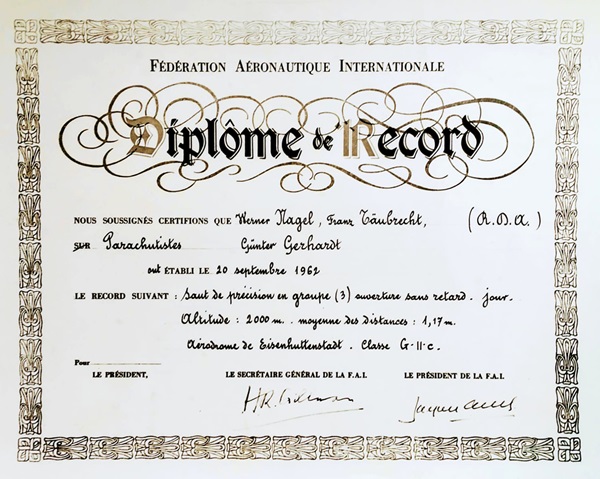 FÉDÉRATION AÉRONAUTIQUE INTERNATIONALE
Diplôme de Record
NOUS SOUSSIGNÉS CERTIFIONS QUE Werner Nagel, Franz Täubrecht, (R.D.A.)
SUR Parachutistes Günter Gerhardt
ont ÉTABLI LE 20 septembre 1962
LE RECORD SUIVANT : Saut de précision en groupe (3) ouverture sans retard. jour.
Altitude : 2000 m. moyenne des distances : 1,17 m.
Aérodrome de Eisenhuttenstadt. Classe G-II-c.
Pour
LE PRÉSIDENT, LE SECRÉTAIRE GÉNÉRAL DE LA F.A.I. LE PRÉSIDENT DE LA F.A.I.